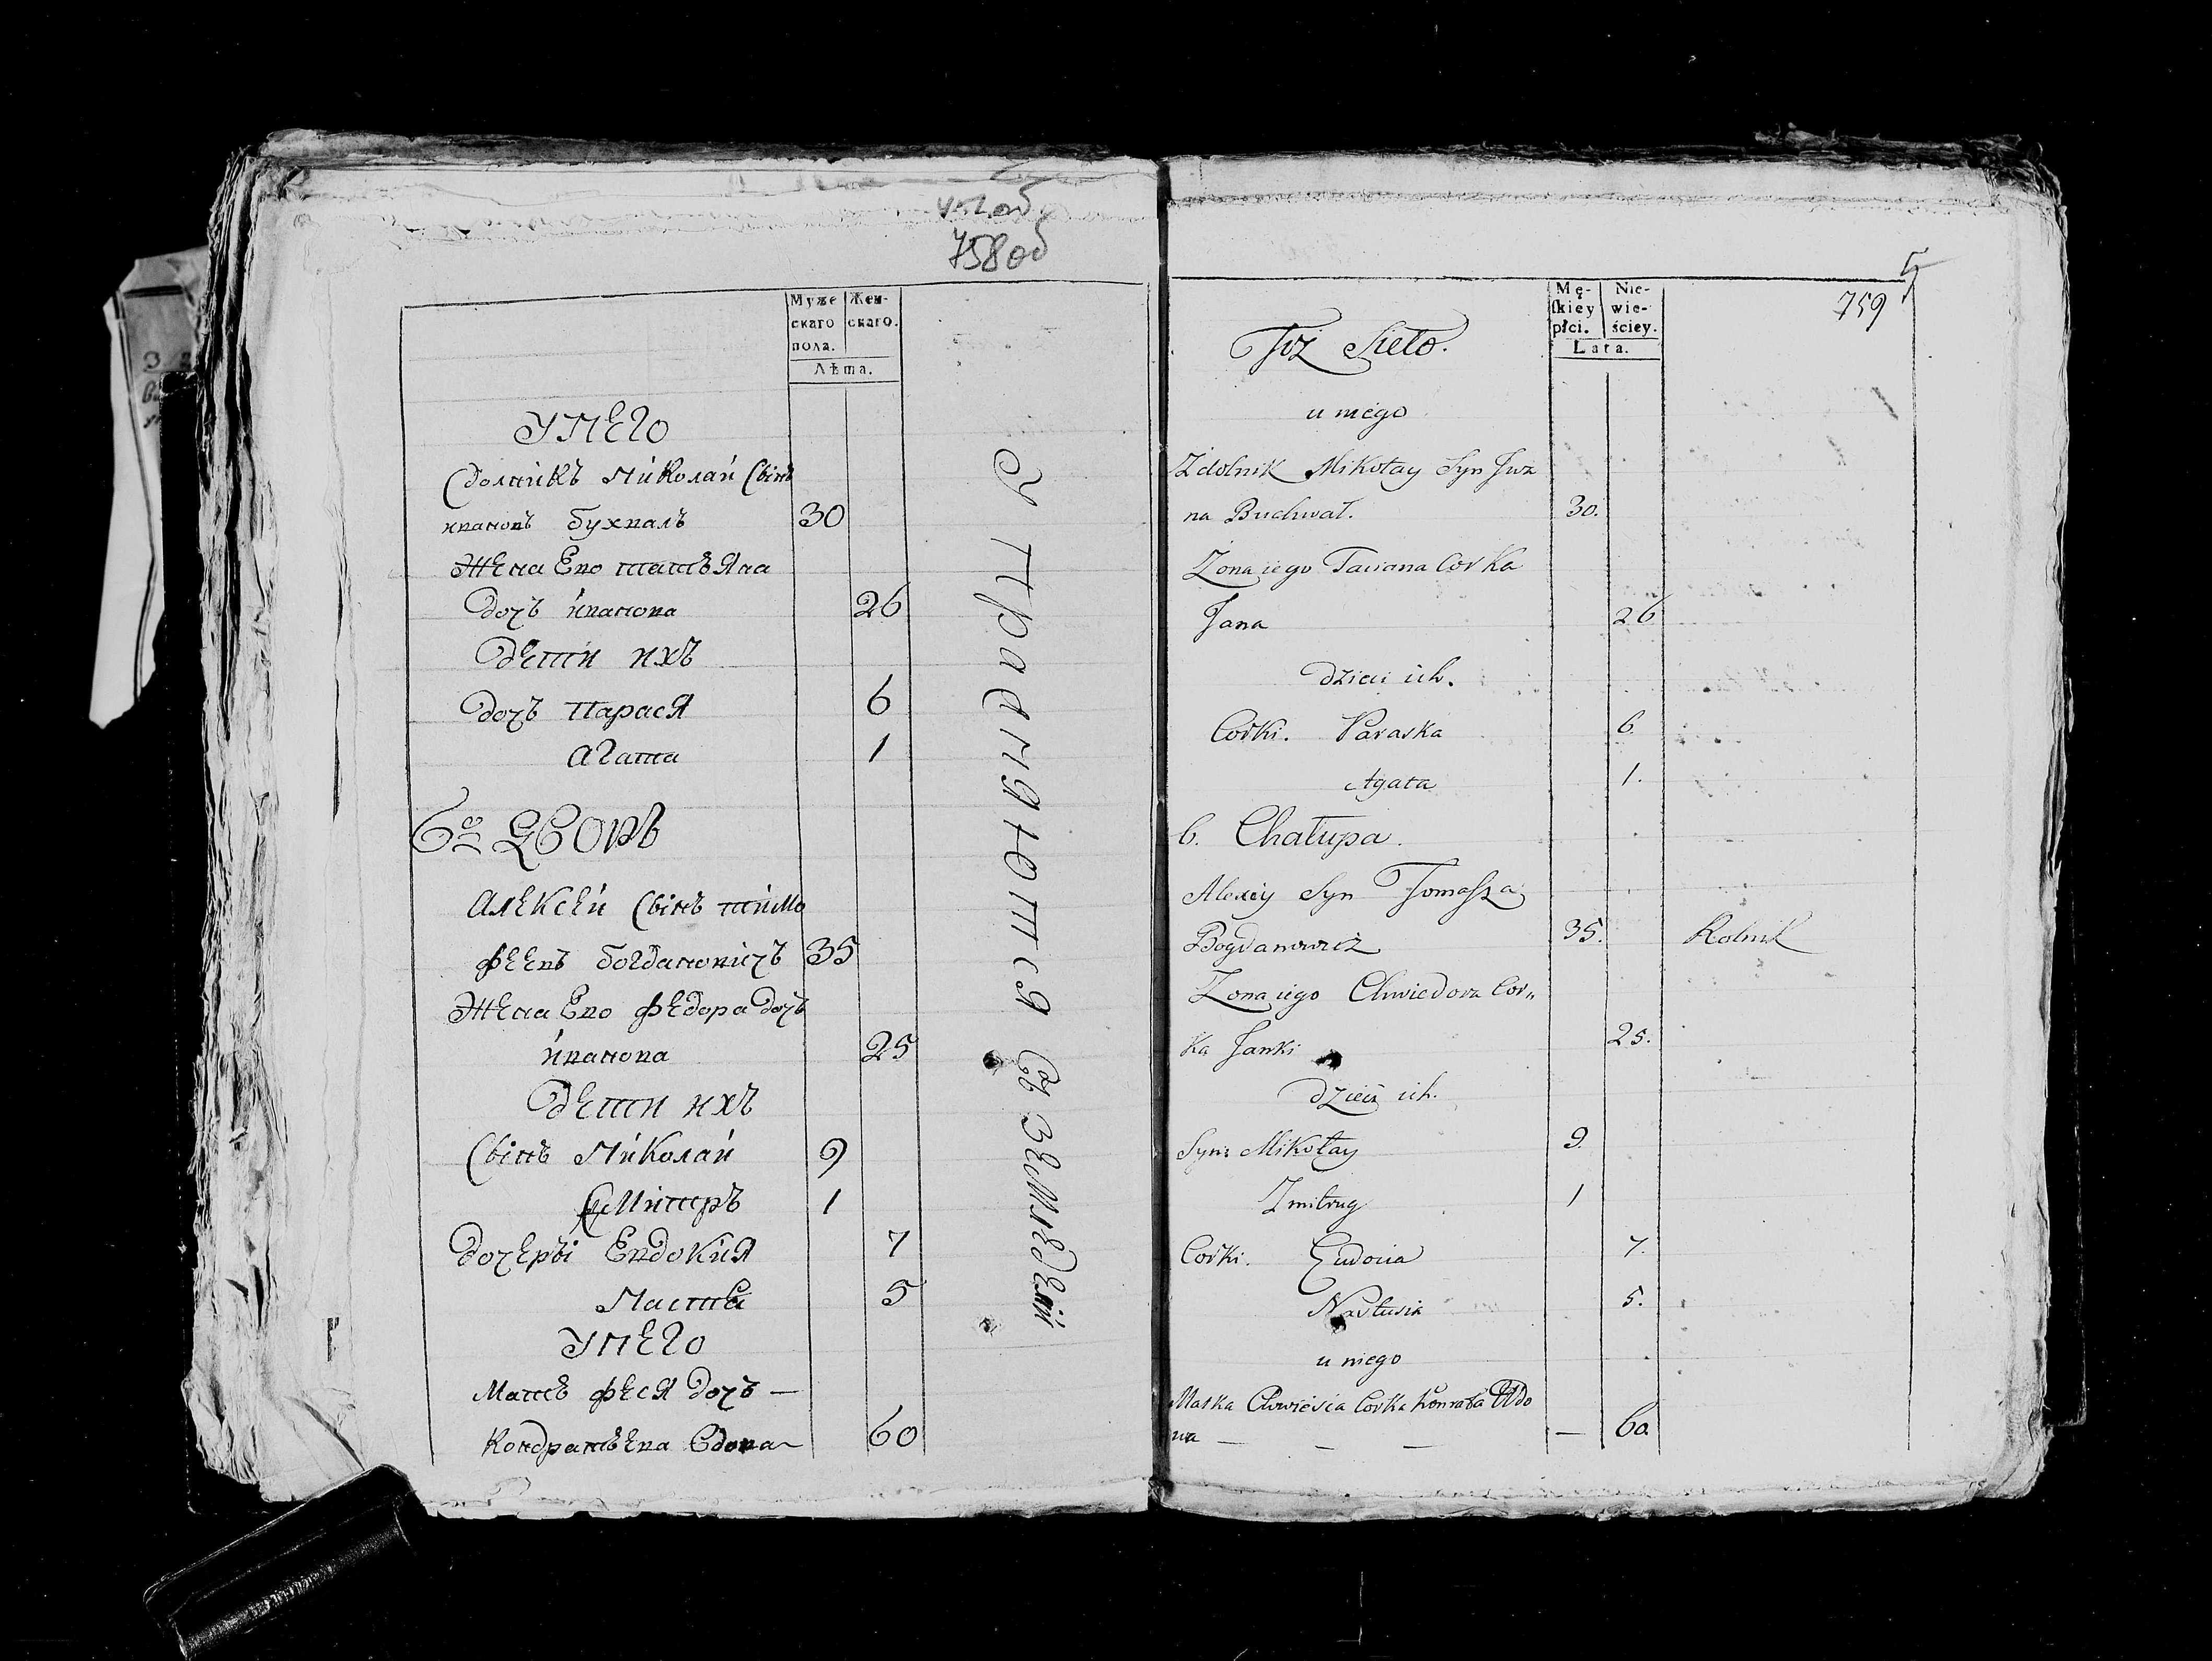 758 об
Муже
скаго
пола.
Жен-
скаго.
Лѣта.
У него
Здолникъ Николай Сынъ
ивановъ бухвалъ 30
Жена Ево татьяна
дочь иванова 26
дети ихъ
дочь Парася 6
Агата 1
6й Дворъ
Алексѣй Сынъ тимо
феевъ богдановичъ 35
Жена Ево федора дочь
иванова 25
дети ихъ
Сынъ Николай 9
Змитръ 1
дочеры Евдокия 7
Настя 5
У него
Мать феся дочь —
Кондратьева вдова 60
Упражняютея въ земледелій
5
759
Mę-
ſkiey
płci.
Nie-
wie-
ściey.
Lata.
Toż Sieło.
u niego
Zdolnik Mikołay Syn Jwa
na Buchwał. 30.
Zona iego Taciana Corka
Jana 26
dzieci ich.
Corki. Paraska 6.
Agata 1.
6. Chałupa.
Alexiy Syn Tomaſza
Bogdanowicz 35. Rolnik
Zona iego Chwiedora Cor„
ka Janki 25.
dzieci ich.
Syn: Mikołay 9.
Zmitruy 1
Corki. Eudocia 7.
Nastusia 5.
u niego
Matka Chwiesia Corka Konrata Wdo
wa — — — — 60